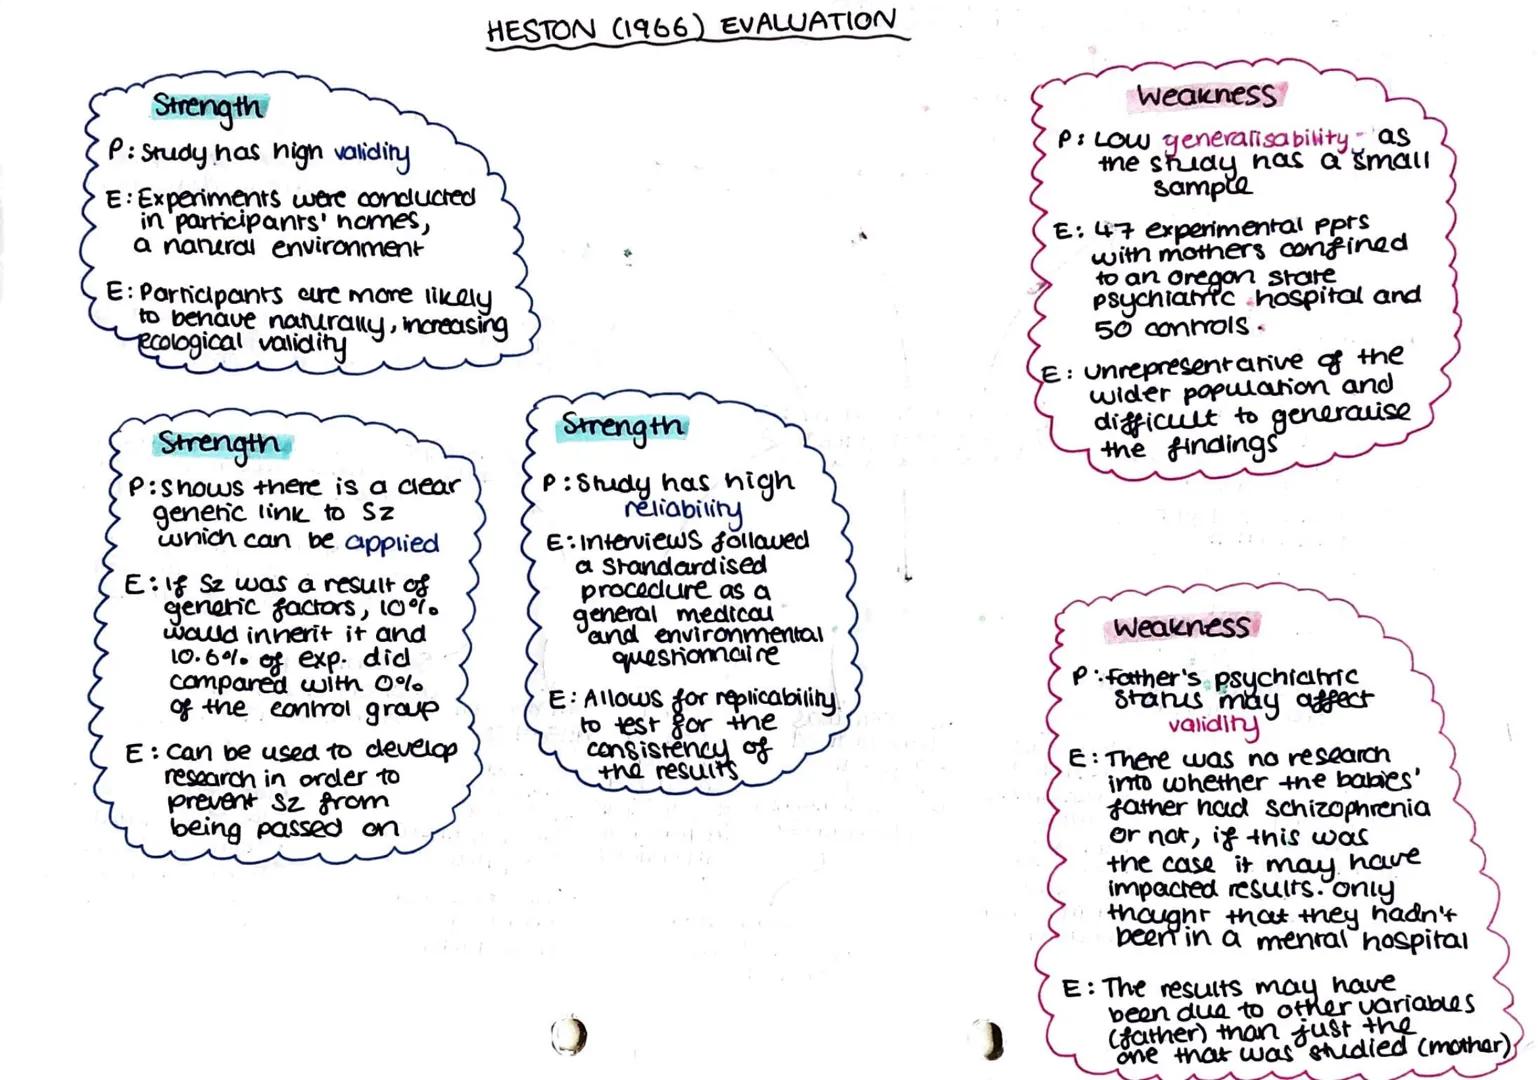 HESTON (1966) EVALUATION
Strength
P: Study has high validity
E: Experiments were conducted
in participants' homes,
a natural environment
E: Participants are more likely
to behave naturally, increasing
ecological validity
Strength
P: Shows there is a clear
genetic link to Sz
which can be applied
E: If Sz was a result of
genetic factors, 10%
would inherit it and
10.6% of exp. did
compared with 0%
of the control group
E: Can be used to develop
research in order to
prevent Sz from
being passed on
Strength
P: Study has high
reliability
E: Interviews followed
a standardised
procedure as a
general medical
and environmental
questionnaire
E: Allows for replicability
to test for the
consistency of
the results
Weakness
P: Low generalisability - as
the study has a small
sample
E: 47 experimental pprs
with mothers confined
to an oregon state
psychiatric hospital and
50 controls.
E: Unrepresentative of the
wider population and
difficult to generalise
the findings
Weakness
P: Father's psychiatric
status may affect
validity
E: There was no research
into whether the babies'
father had schizophrenia
or not, if this was
the case it may have
impacted results. Only
thought that they hadn't
been in a mental hospital
E: The results may have
been due to other variables
(father) than just the
one that was studied (mother)